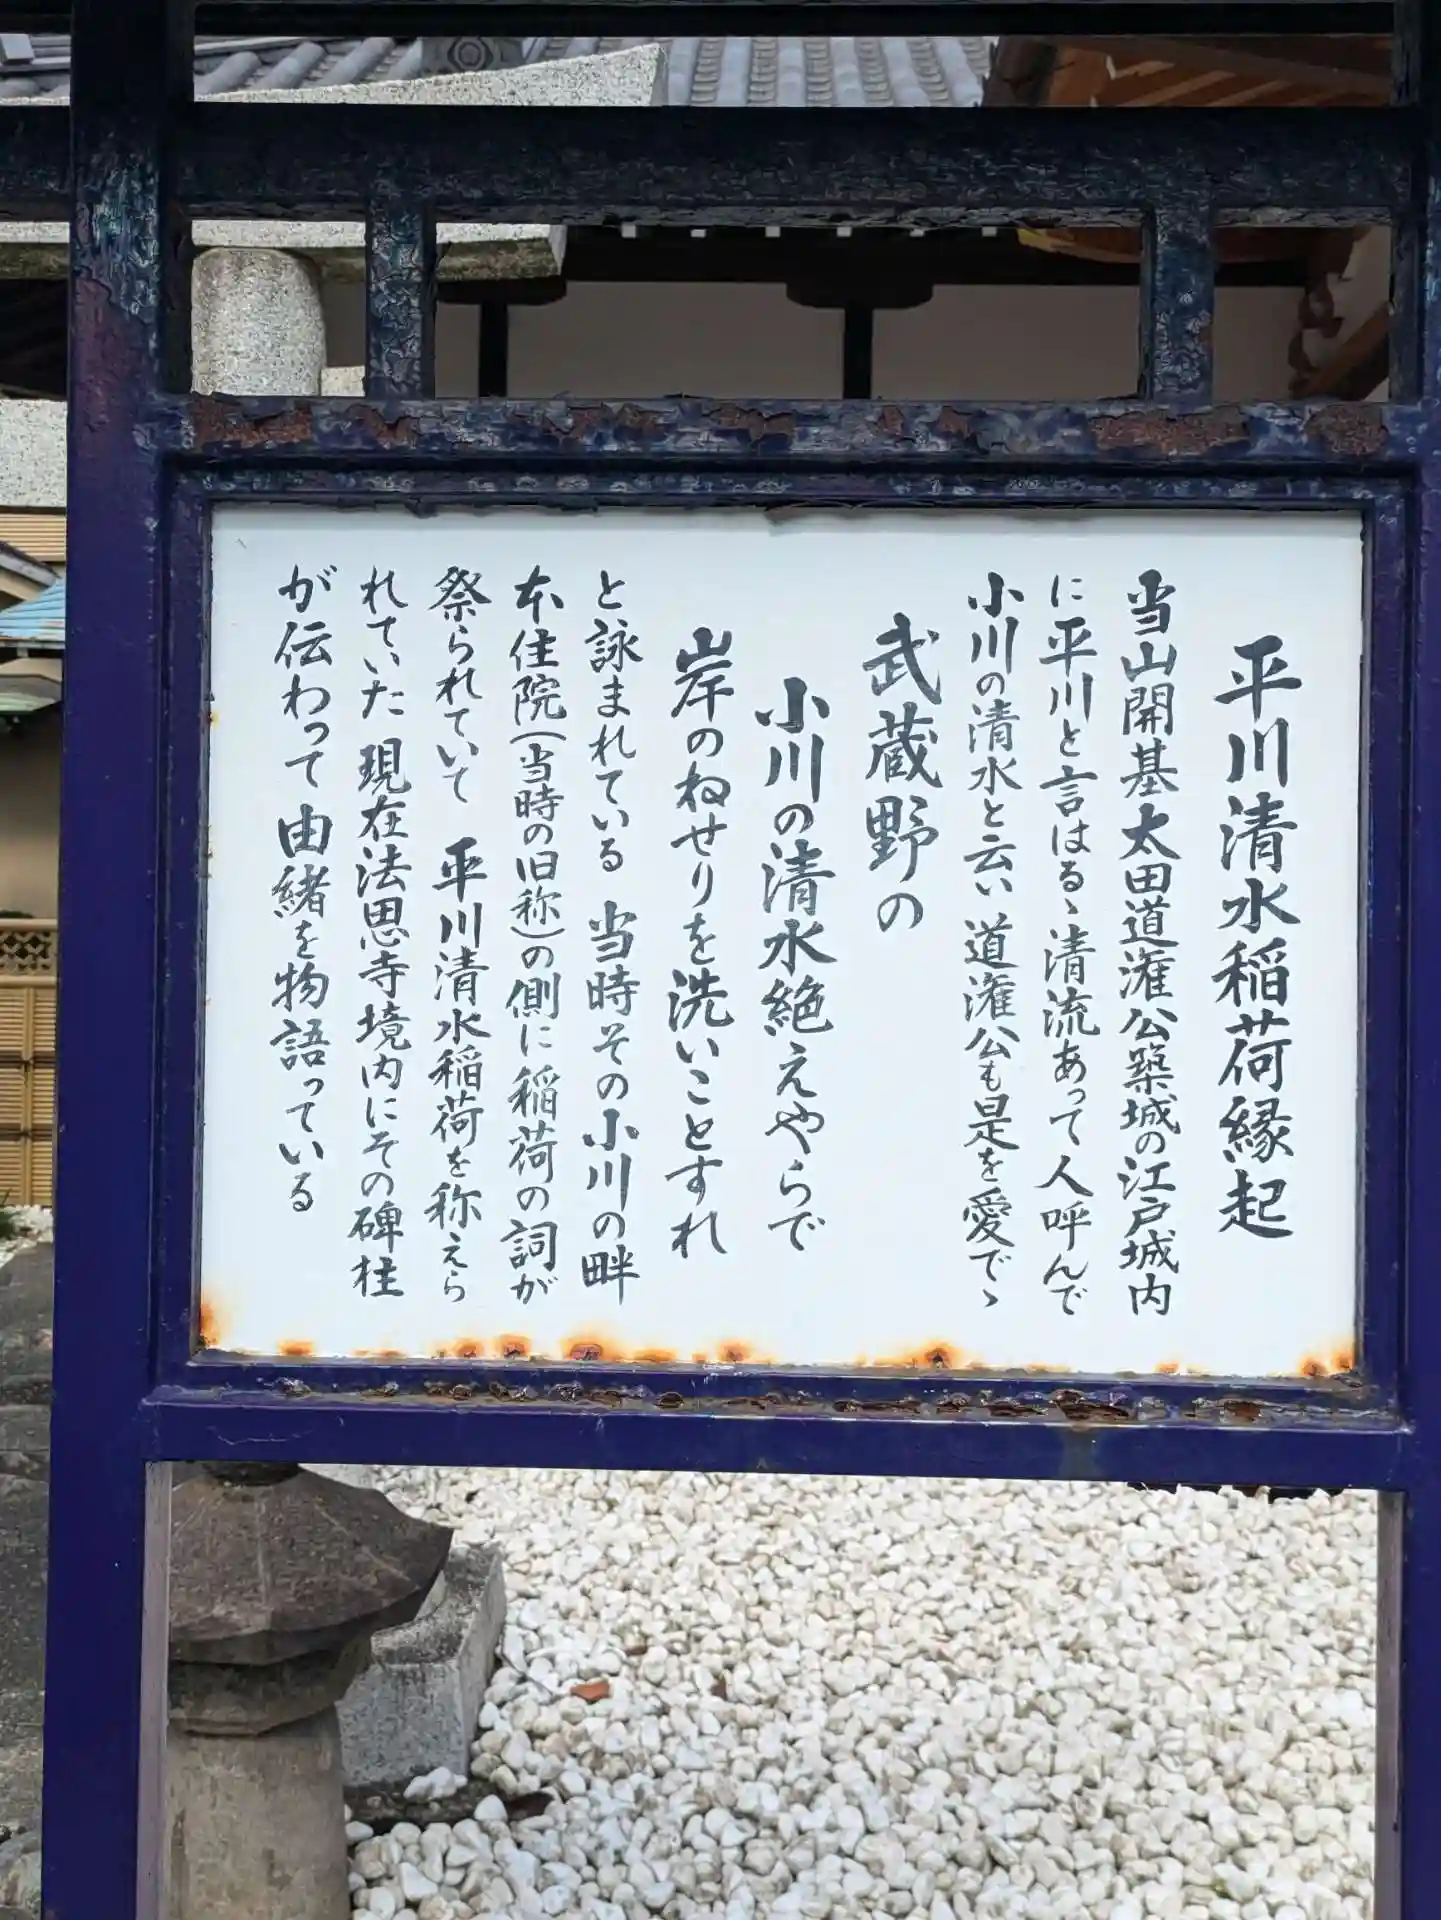 平川清水稲荷縁起
当山開基太田道潅公築城の江戸城内
に平川と言はるゝ清流あって人呼んで
小川の清水と云い 道潅公も是を愛でゝ
武蔵野の
小川の清水絶えやらで
岸のねせりを洗いことすれ
と詠まれている 当時その小川の畔
本住院(当時の旧称)の側に稲荷の詞が
祭られていて 平川清水稲荷を称えら
れていた 現在法恩寺境内にその碑柱
が伝わって由緒を物語っている